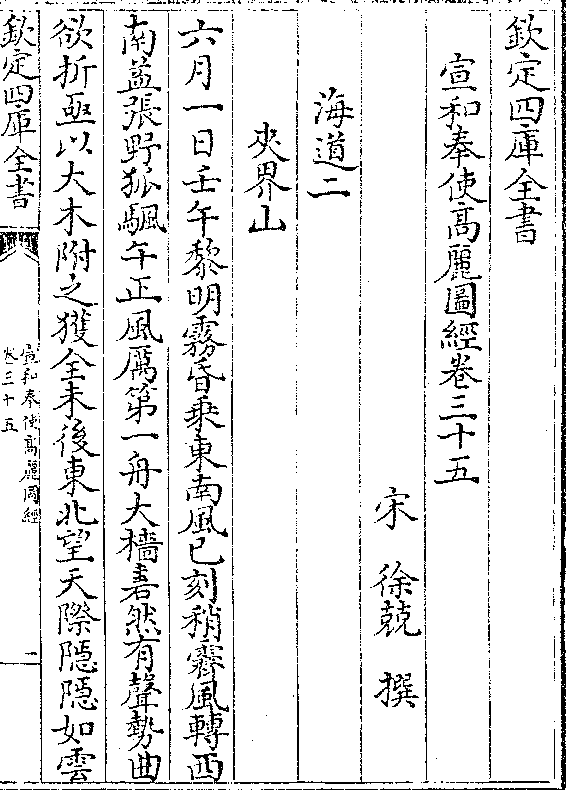 欽定四庫全書
宣和奉使髙麗圖經卷三十五
宋 徐兢 撰
海道二
夾界山
六月一日壬午黎明霧昏乗東南風巳刻稍霽風轉西
南益張野狐颿午正風厲第一舟大檣砉然有聲勢曲
欲折亟以大木附之獲全未後東北望天際隠隠如雲
欽定四庫全書
宣和奉使髙麗圖經
卷三十五
一